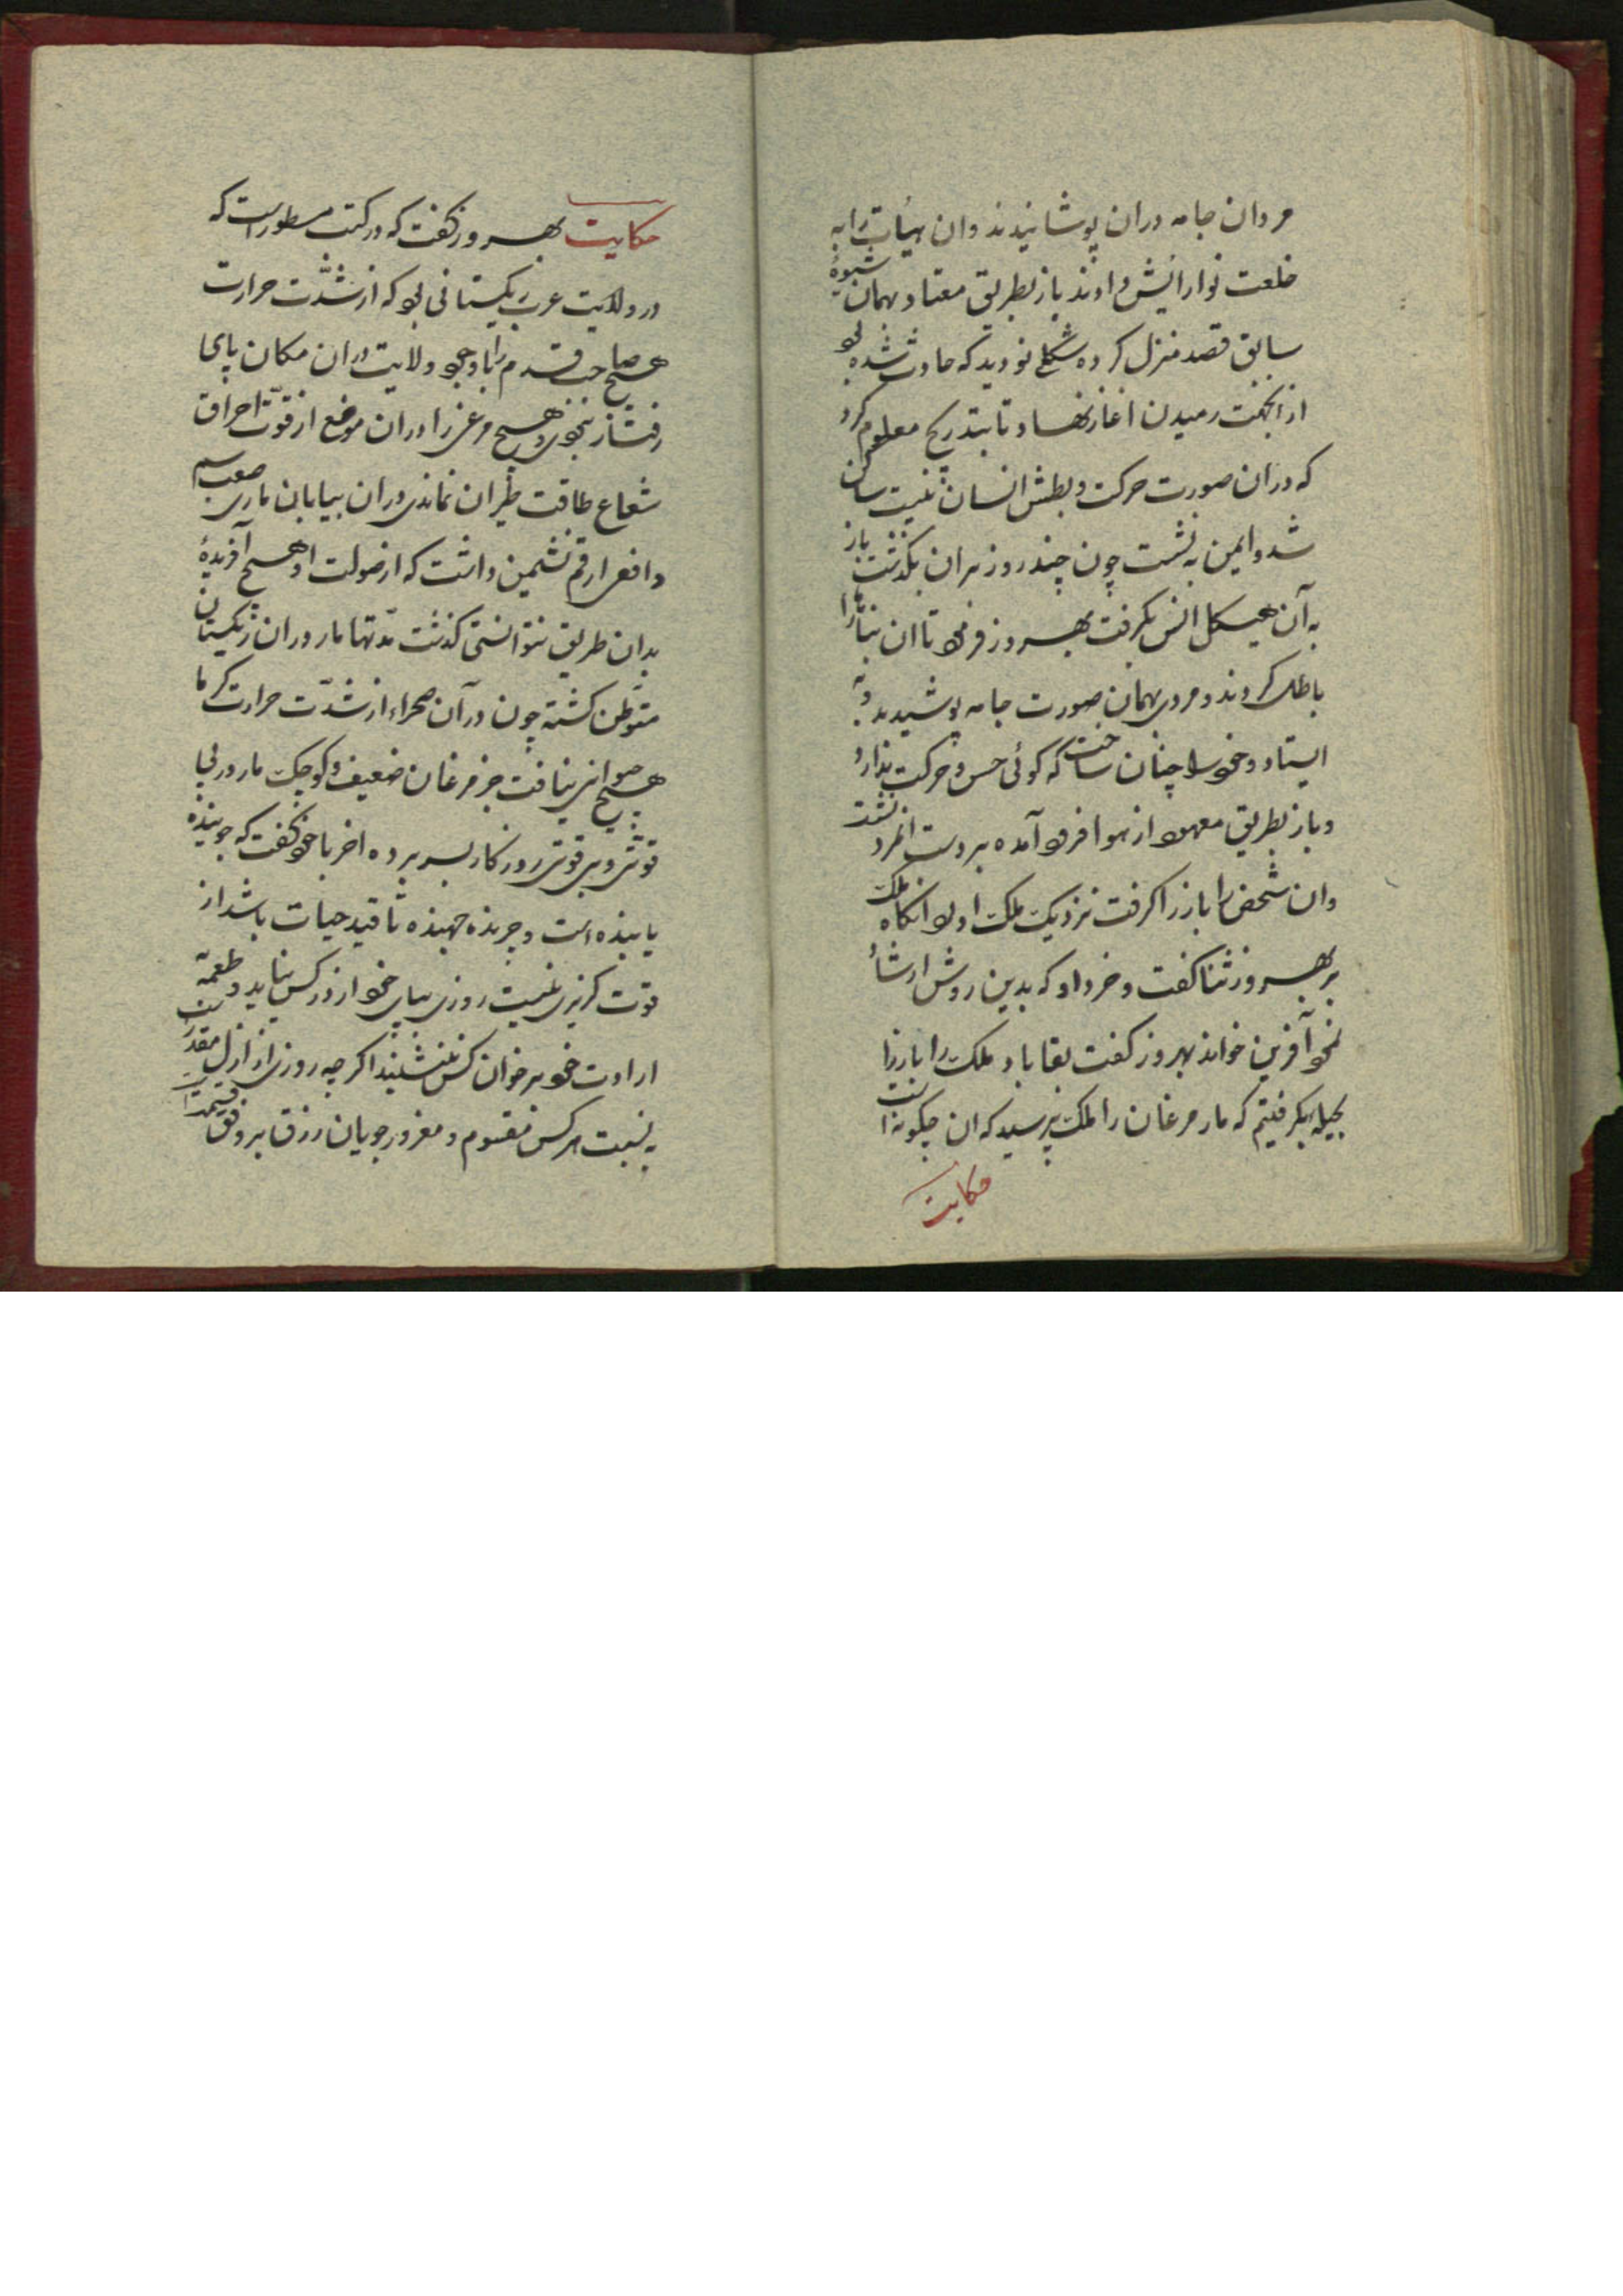 مردان جامه دران پوشانیدند وان هیأت را به
خلعت نو ارایش دادند باز بطریق معتاد و بهمان شیوهٔ
سابق قصد منزل کرده شکلی نو دید که حادث شده بود
از انجهت رمیدن اغاز نهاد تا بتدریج معلوم کرد
که دران صورت حرکت و بطش انسان نیست ساکن
شد و ایمن به نشست چون چند روز بران بگذشت باز
به آن هیکل انس بگرفت بهروز فرمود تا ان بنا را
باطل کردند و مردی بهمان صورت جامه پوشیده
ایستاد و خود را چنان ساخت که گوئی حس و حرکت ندارد
و باز بطریق معهود از هوا فرود آمده بر دست انمرد نشست
وان شخص باز را گرفت نزدیک ملک اورد انگاه ملک
بر بهروز ثنا گفت و خرداد که بدین روش ارشاد
نمود آفرین خواند بهروز گفت بقا باد ملک را باز را
بحیله بگرفتیم که مار مرغان را ملک پرسید که ان چگونه است
حکایت
حکایت بهروز گفت که در کتب مسطور است که
در ولایت عرب ریگستانی بود که از شدّت حرارت
هیچ صاحب قدم را با وجود ولایت دران مکان پای
رفتار نبودی و هیچ مرغ را دران موضع از قوّت احراق
شعاع طاقت طیران نماندی دران بیابان ماری صعب سم
و افعی ارقم نشیمن داشت که از صولت او هیچ آفریدهٔ
بدان طریق نتوانستی گذشت مدّتها مار دران ریگستان
متوطن گشته چون در آن صحراء از شدّت حرارت گرما
هیچ حیوانی نیافت جز مرغان ضعیف و کوچک مار در بی
قوتی و بی قوّتی روزگار بسر برده اخر با خود گفت که جوینده
یابنده است و چرنده جهنده تا قید حیات باشد از
قوت گریزی نیست روزی بپای خود از در کس نیاید و طعمه
ارادت خود بر خوان کس ننشیند اگر چه روزی از ازل مقدر
به نسبت هر کس مقسوم و مغرور جویان رزق بر وفق قسمت